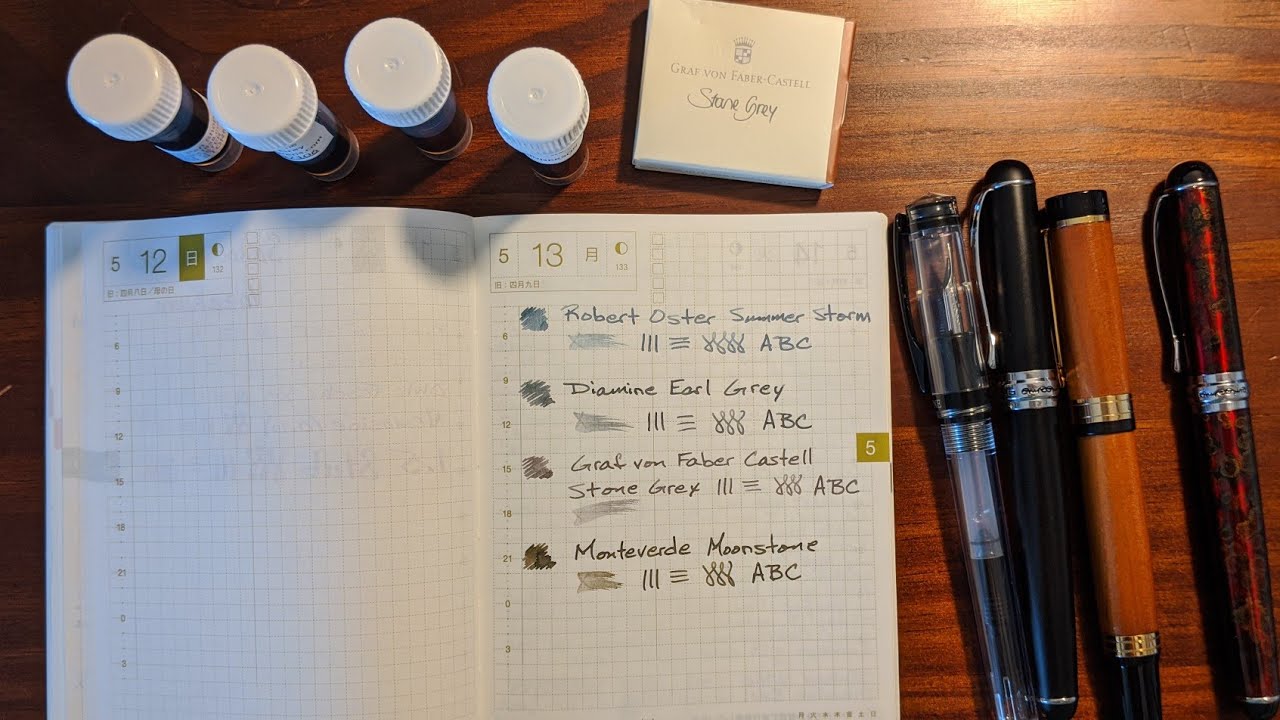 GRAF VON FABER-CASTELL
Stone Grey
5 12 日
132
旧:四月八日/母の日
6
9
12
15
18
21
0
3
5 13 月
133
旧:四月九日
6
9
12
15
18
21
0
3
Robert Oster Summer Storm
ABC
Diamine Earl Grey
ABC
Graf von Faber Castell
Stone Grey ABC
Monteverde Moonstone
ABC
5
月 火 水 木 金 土 日